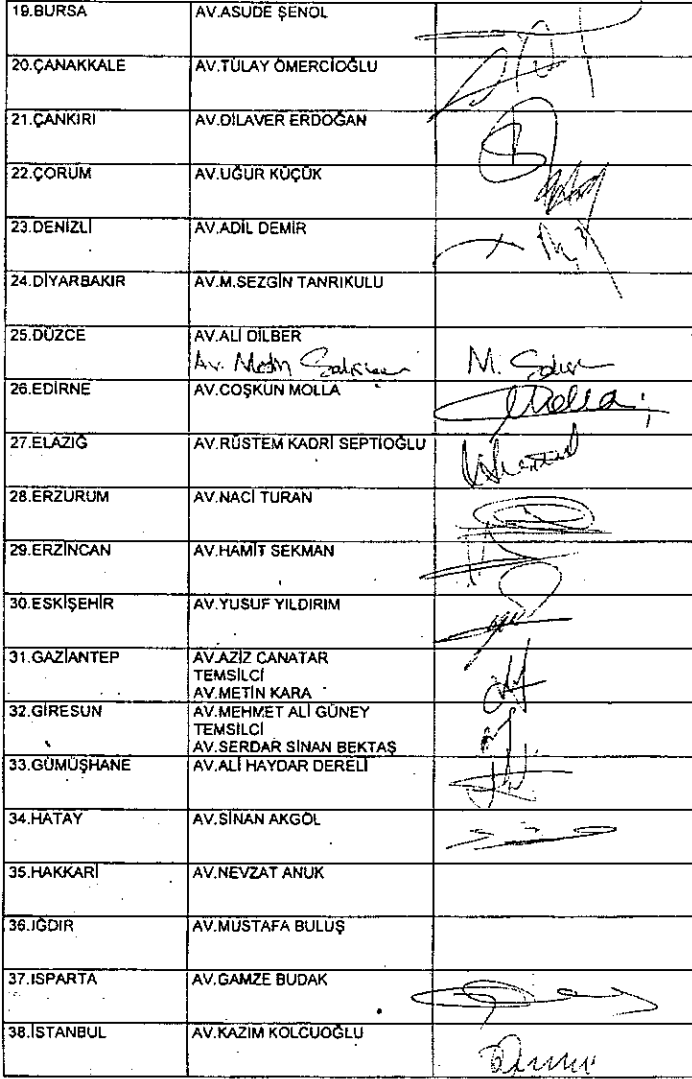 19.BURSA AV.ASUDE ŞENOL
20.ÇANAKKALE AV.TÜLAY ÖMERCİOĞLU
21.ÇANKIRI AV.DİLAVER ERDOĞAN
22.ÇORUM AV.UĞUR KÜÇÜK
23.DENİZLİ AV.ADİL DEMİR
24.DİYARBAKIR AV.M.SEZGİN TANRIKULU
25.DÜZCE AV.ALİ DİLBER
Av. Metin M.
26.EDİRNE AV.COŞKUN MOLLA
27.ELAZIĞ AV.RÜSTEM KADRİ SEPTİOĞLU
28.ERZURUM AV.NACİ TURAN
29.ERZİNCAN AV.HAMİT SEKMAN
30.ESKİŞEHİR AV.YUSUF YILDIRIM
31.GAZİANTEP AV.AZİZ CANATAR
TEMSİLCİ
AV.METİN KARA
32.GİRESUN AV.MEHMET ALİ GÜNEY
TEMSİLCİ
AV.SERDAR SİNAN BEKTAŞ
33.GÜMÜŞHANE AV.ALİ HAYDAR DERELİ
34.HATAY AV.SİNAN AKGÖL
35.HAKKARİ AV.NEVZAT ANUK
36.IĞDIR AV.MUSTAFA BULUŞ
37.ISPARTA AV.GAMZE BUDAK
38.İSTANBUL AV.KAZIM KOLCUOĞLU